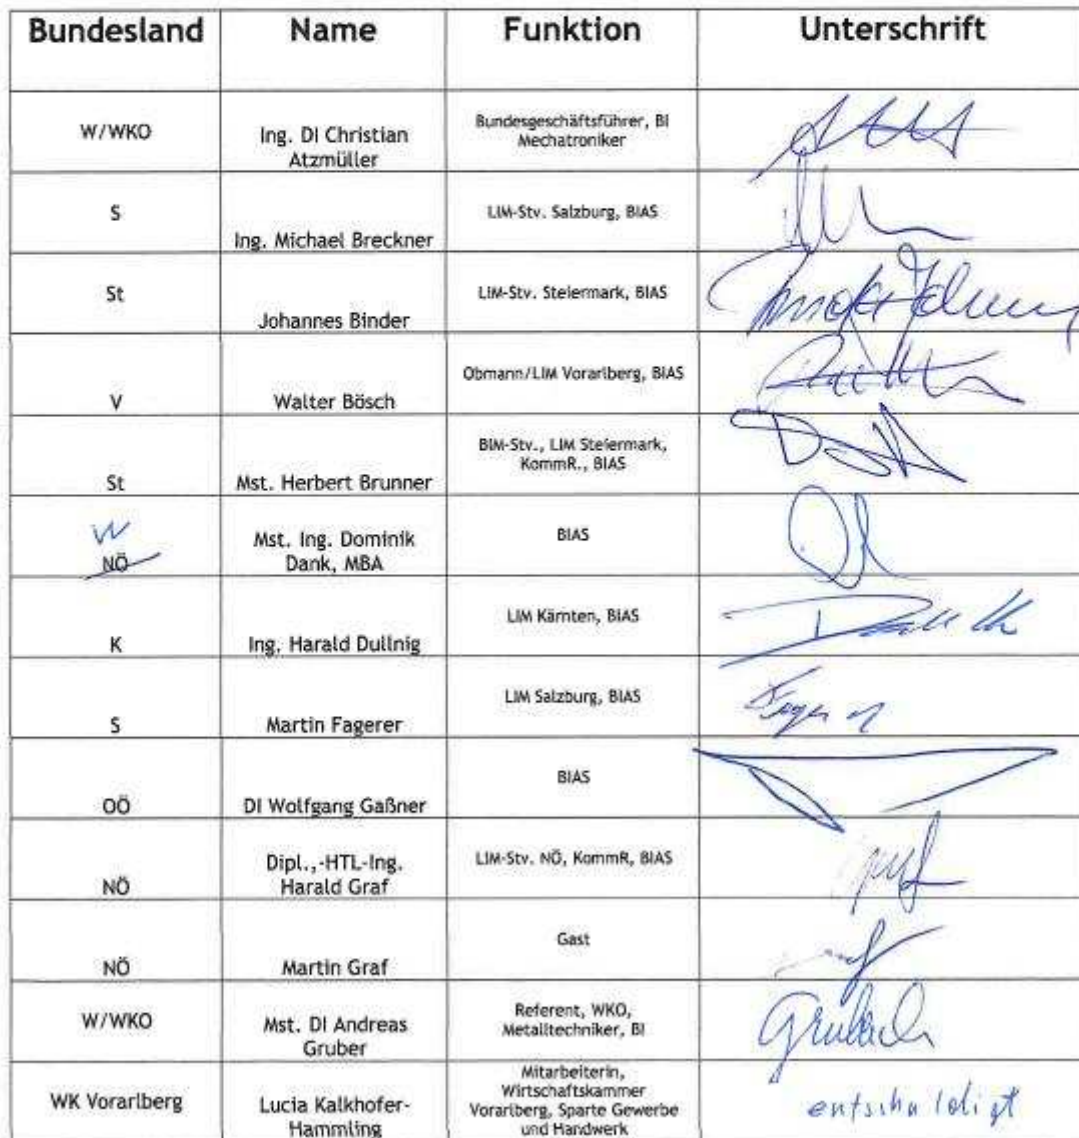 Bundesland Name Funktion Unterschrift
W/WKO Ing. DI Christian Atzmüller Bundesgeschäftsführer, BI Mechatroniker
S Ing. Michael Breckner LIM-Stv. Salzburg, BIAS
St Johannes Binder LIM-Stv. Steiermark, BIAS
V Walter Bösch Obmann/LIM Vorarlberg, BIAS
St Mst. Herbert Brunner BIM-Stv., LIM Steiermark, KommR., BIAS
W
NÖ Mst. Ing. Dominik Dank, MBA BIAS
K Ing. Harald Dullnig LIM Kärnten, BIAS
S Martin Fagerer LIM Salzburg, BIAS
OÖ DI Wolfgang Gaßner BIAS
NÖ Dipl.,-HTL-Ing. Harald Graf LIM-Stv. NÖ, KommR, BIAS
NÖ Martin Graf Gast
W/WKO Mst. DI Andreas Gruber Referent, WKO, Metalltechniker, BI
WK Vorarlberg Lucia Kalkhofer-Hammling Mitarbeiterin, Wirtschaftskammer Vorarlberg, Sparte Gewerbe und Handwerk entschuldigt